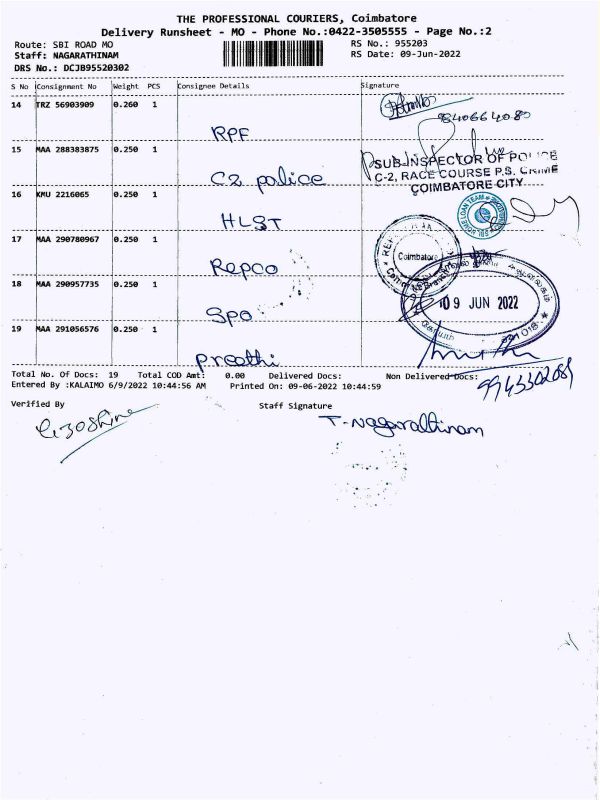 THE PROFESSIONAL COURIERS, Coimbatore
Delivery Runsheet - MO - Phone No.:0422-3505555 - Page No.:2
Route: SBI ROAD MO
RS No.: 955203
Staff: NAGARATHINAM
RS Date: 09-Jun-2022
DRS No.: DCJB95520302
S No Consignment No Weight PCS Consignee Details Signature
14 TRZ 56903909 0.260 1
9840664080
RPF
15 MAA 288383875 0.250 1
SUB-INSPECTOR OF POLICE
C-2, RACE COURSE P.S. CRIME
COIMBATORE CITY
C2 police
16 KMU 2216065 0.250 1
HLST
17 MAA 290780967 0.250 1
Coimbatore
Repco
18 MAA 290957735 0.250 1
09 JUN 2022
Spo
19 MAA 291056576 0.250 1
Preethi
Total No. Of Docs: 19 Total COD Amt: 0.00 Delivered Docs: Non Delivered Docs:
Entered By :KALAIMO 6/9/2022 10:44:56 AM Printed On: 09-06-2022 10:44:59
Verified By
Staff Signature
T-Nagarathinam